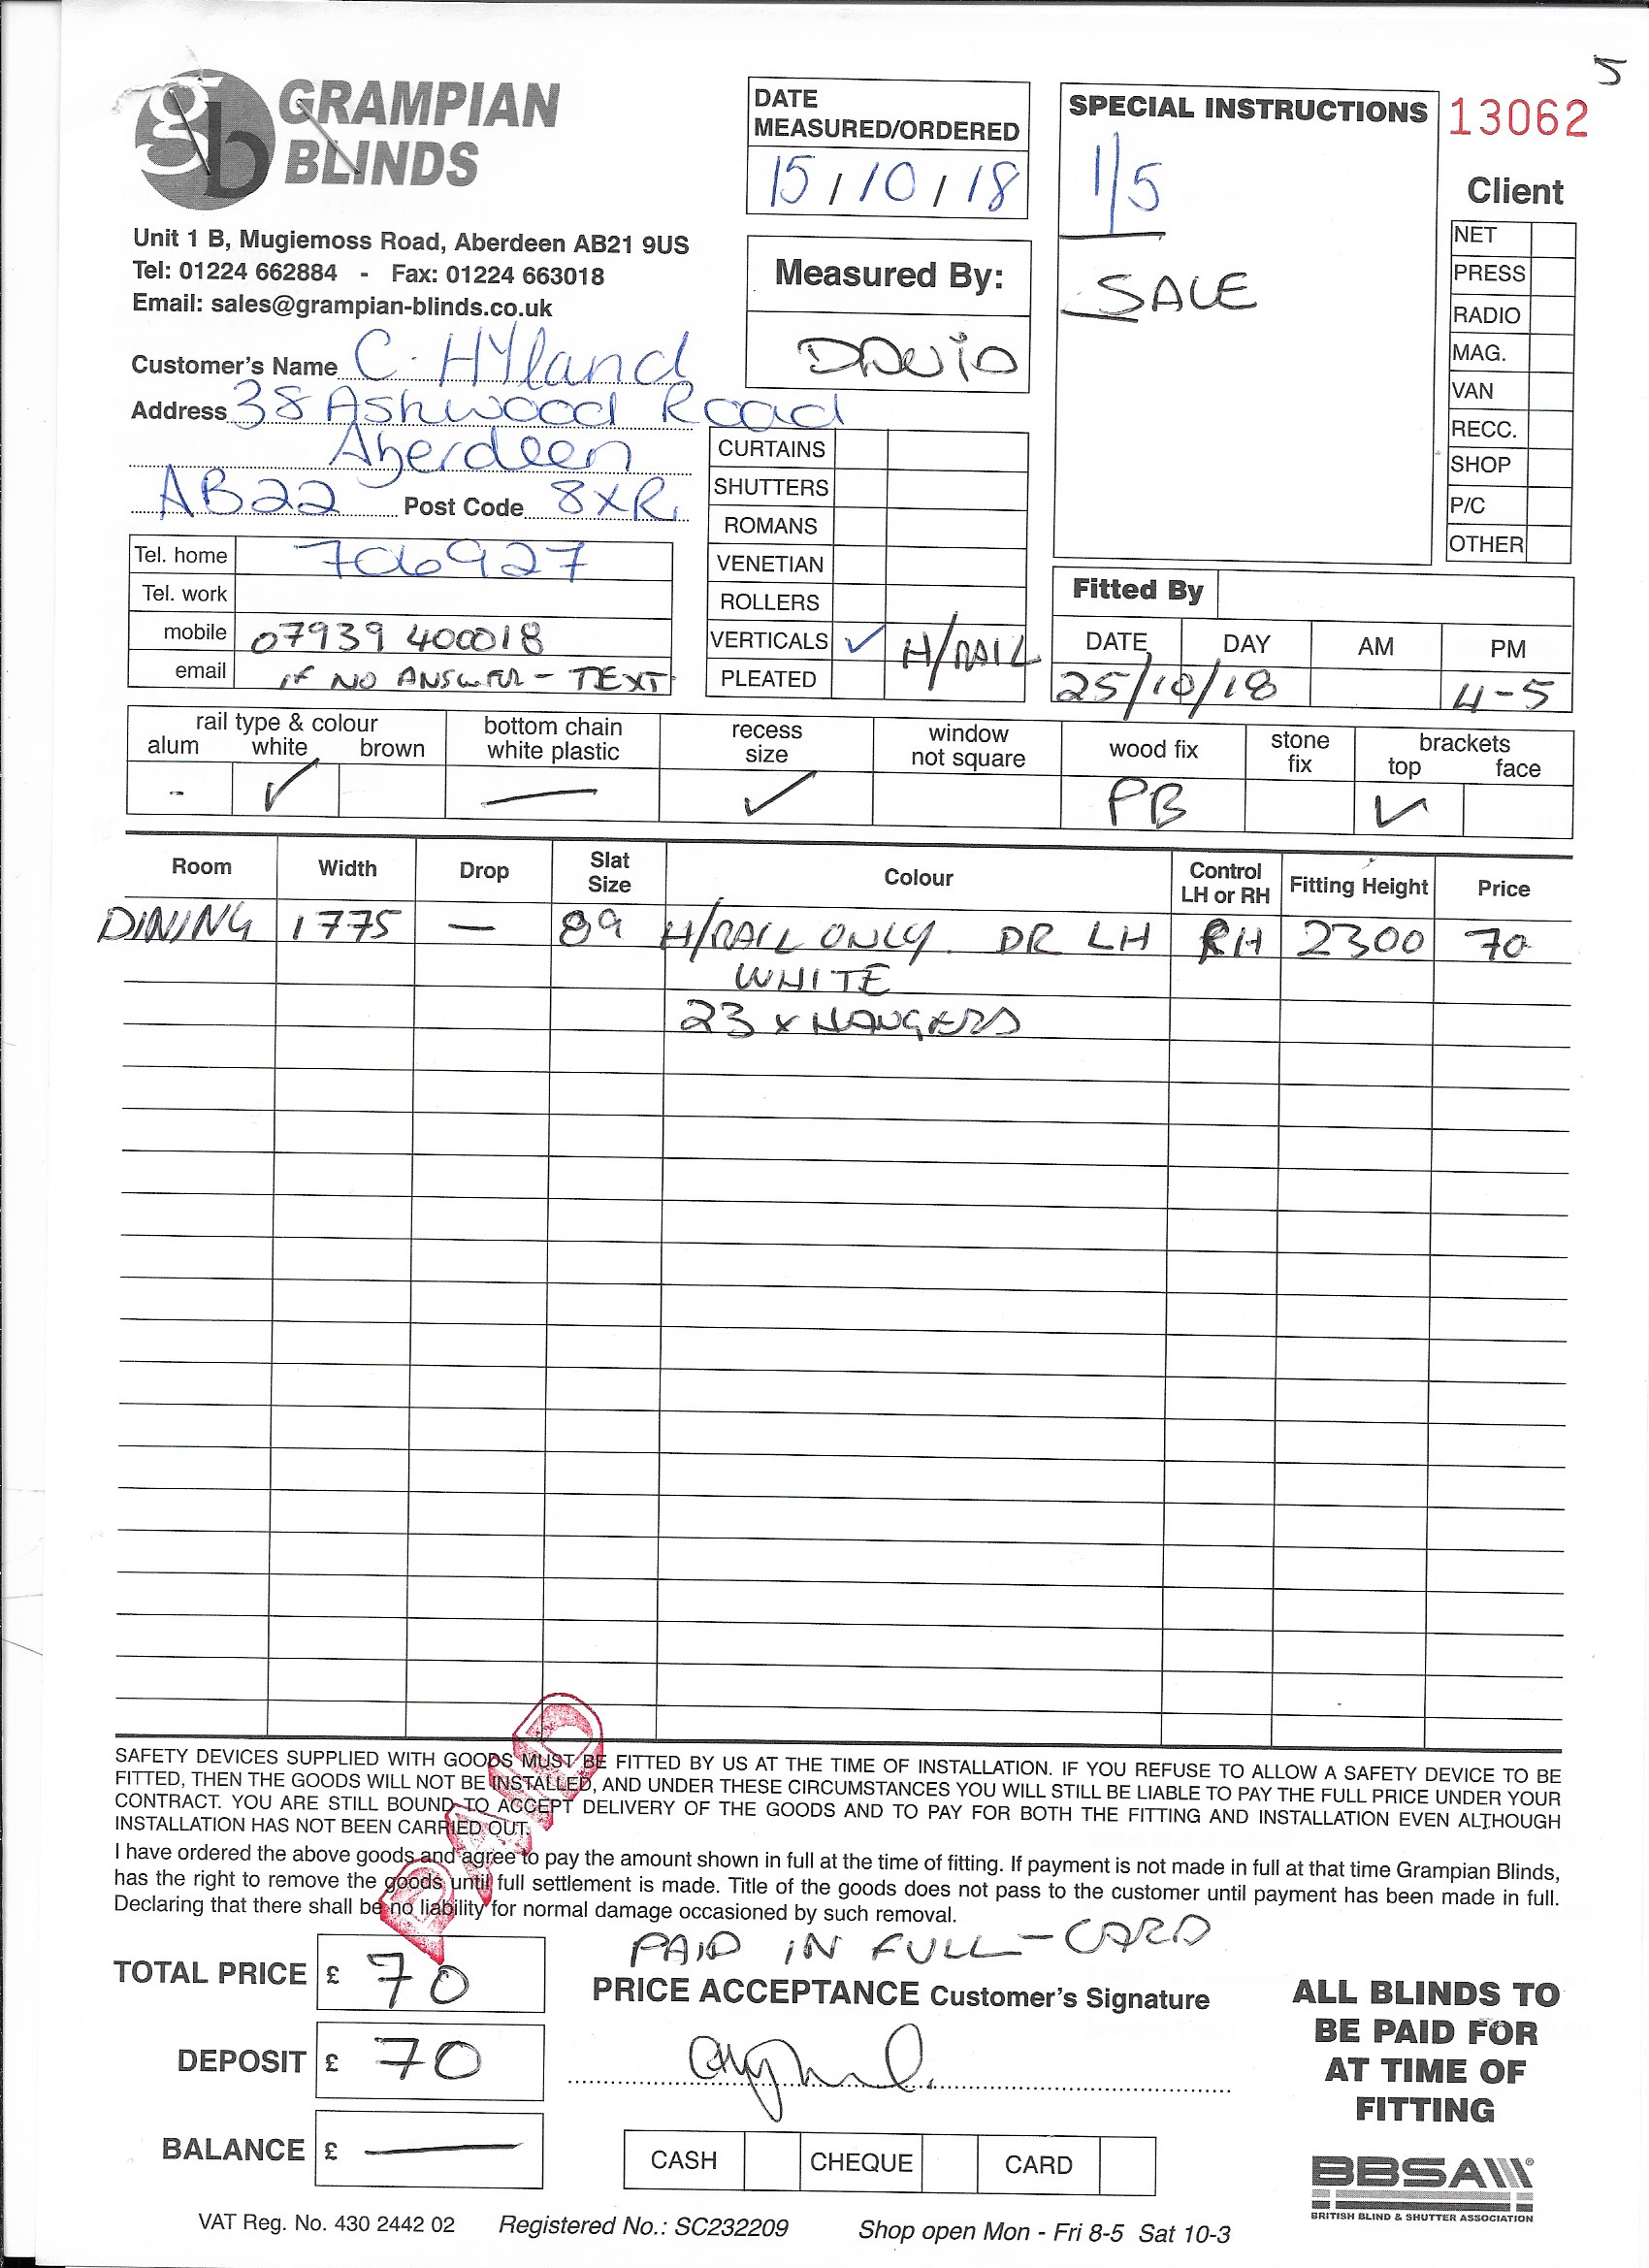 5
GRAMPIAN
BLINDS
gb
Unit 1 B, Mugiemoss Road, Aberdeen AB21 9US
Tel: 01224 662884 - Fax: 01224 663018
Email: sales@grampian-blinds.co.uk
Customer's Name C. HYland
Address 38 Ashwood Road
Aberdeen
AB22 Post Code 8XR.
Tel. home 706927
Tel. work
mobile 07939 400018
email if NO ANSWER - TEXT
DATE
MEASURED/ORDERED
15/10/18
Measured By:
DAVID
CURTAINS
SHUTTERS
ROMANS
VENETIAN
ROLLERS
VERTICALS ✓ H/RAIL
PLEATED
SPECIAL INSTRUCTIONS
1/5
SALE
13062
Client
NET
PRESS
RADIO
MAG.
VAN
RECC.
SHOP
P/C
OTHER
Fitted By
DATE DAY AM PM
25/10/18 4-5
rail type & colour
alum white brown
- ✓
bottom chain
white plastic
—
recess
size
✓
window
not square
wood fix
PB
stone
fix
brackets
top face
✓
Room Width Drop Slat Size Colour Control LH or RH Fitting Height Price
DINING 1775 — 89 H/RAIL ONLY. DR LH RH 2300 70
WHITE
23 x HANGERS
SAFETY DEVICES SUPPLIED WITH GOODS MUST BE FITTED BY US AT THE TIME OF INSTALLATION. IF YOU REFUSE TO ALLOW A SAFETY DEVICE TO BE
FITTED, THEN THE GOODS WILL NOT BE INSTALLED, AND UNDER THESE CIRCUMSTANCES YOU WILL STILL BE LIABLE TO PAY THE FULL PRICE UNDER YOUR
CONTRACT. YOU ARE STILL BOUND TO ACCEPT DELIVERY OF THE GOODS AND TO PAY FOR BOTH THE FITTING AND INSTALLATION EVEN ALTHOUGH
INSTALLATION HAS NOT BEEN CARRIED OUT.
I have ordered the above goods and agree to pay the amount shown in full at the time of fitting. If payment is not made in full at that time Grampian Blinds,
has the right to remove the goods until full settlement is made. Title of the goods does not pass to the customer until payment has been made in full.
Declaring that there shall be no liability for normal damage occasioned by such removal.
PAID
PAID IN FULL - CARD
TOTAL PRICE £ 70
DEPOSIT £ 70
BALANCE £ —
PRICE ACCEPTANCE Customer's Signature
CASH CHEQUE CARD
ALL BLINDS TO
BE PAID FOR
AT TIME OF
FITTING
BBSA
BRITISH BLIND & SHUTTER ASSOCIATION
VAT Reg. No. 430 2442 02 Registered No.: SC232209 Shop open Mon - Fri 8-5 Sat 10-3